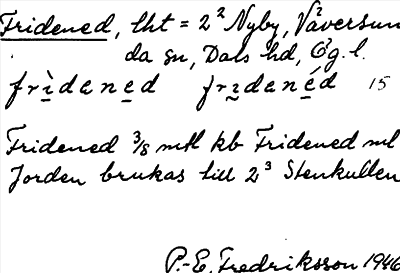 Fridened, lht = 2² Nyby, Väversun
da sn, Dals hd, Ög. l.
frìdened frıdenéd 15
Fridened 3/8 mtl kb Fridened ml
Jorden brukas till 2³ Stenkullen
P.-E. Fredriksson 1946